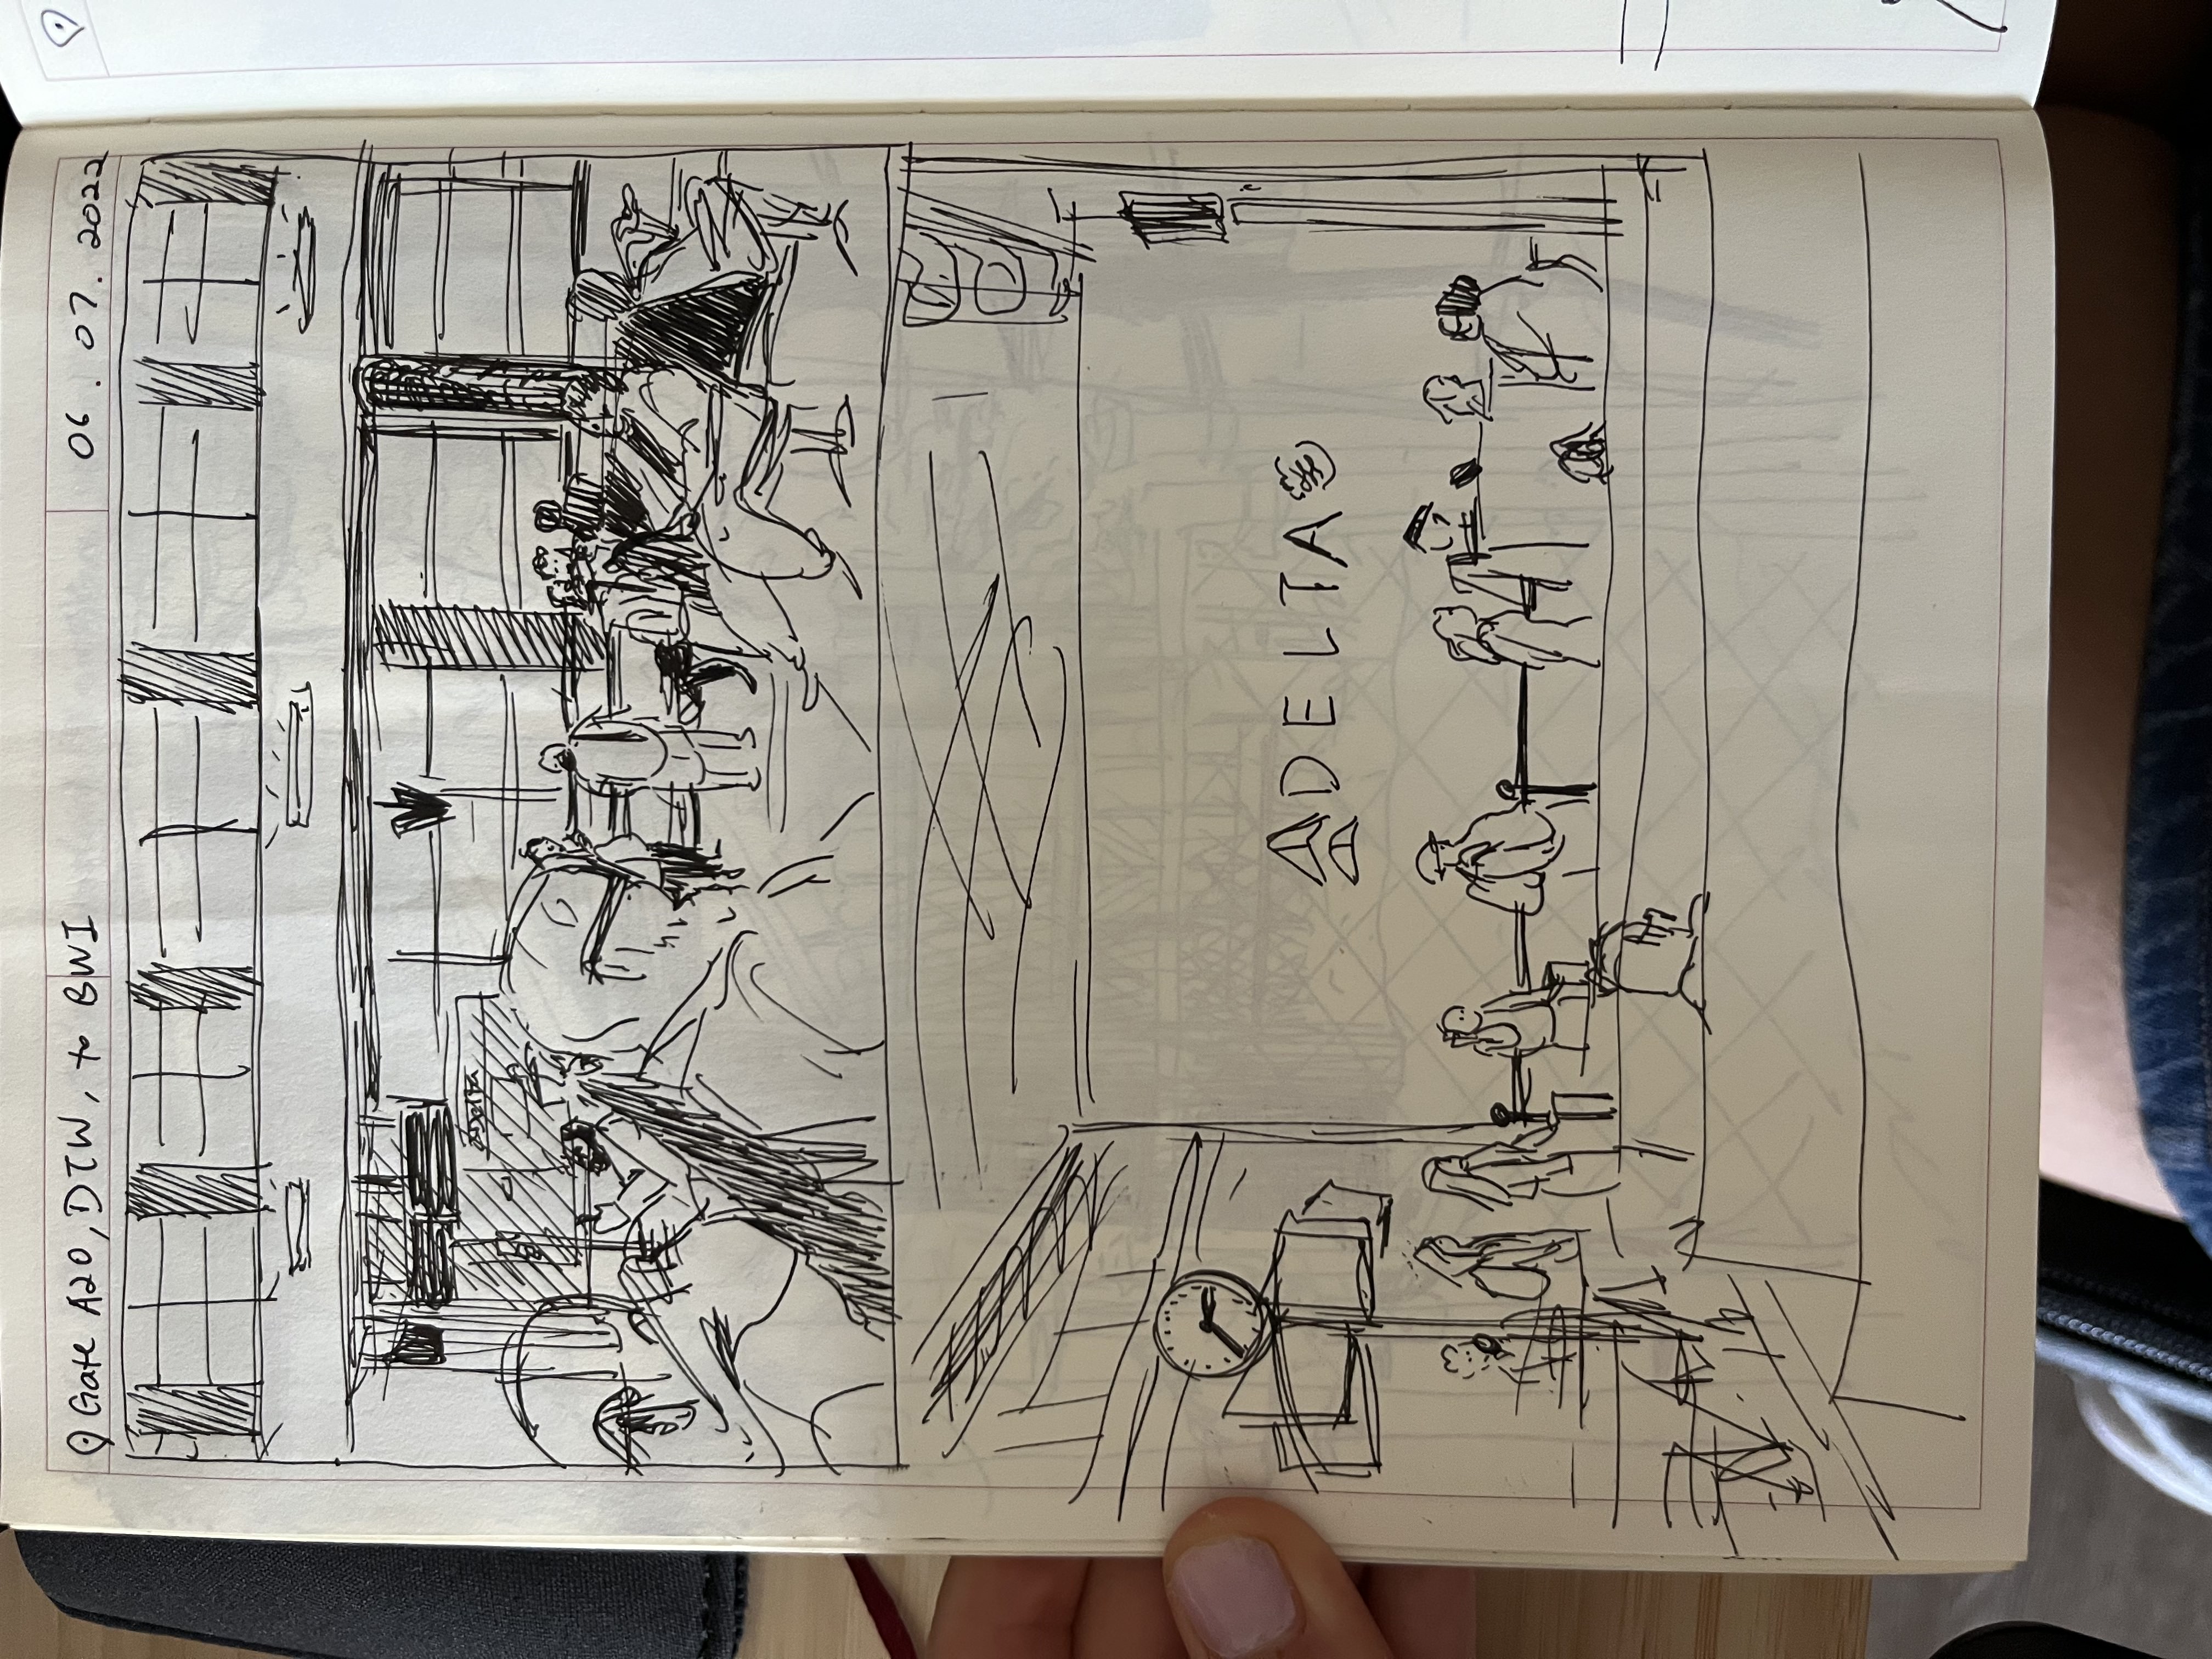 Gate A20, DTW, to BWI
06 . 07 . 2022
Delta
DELTA